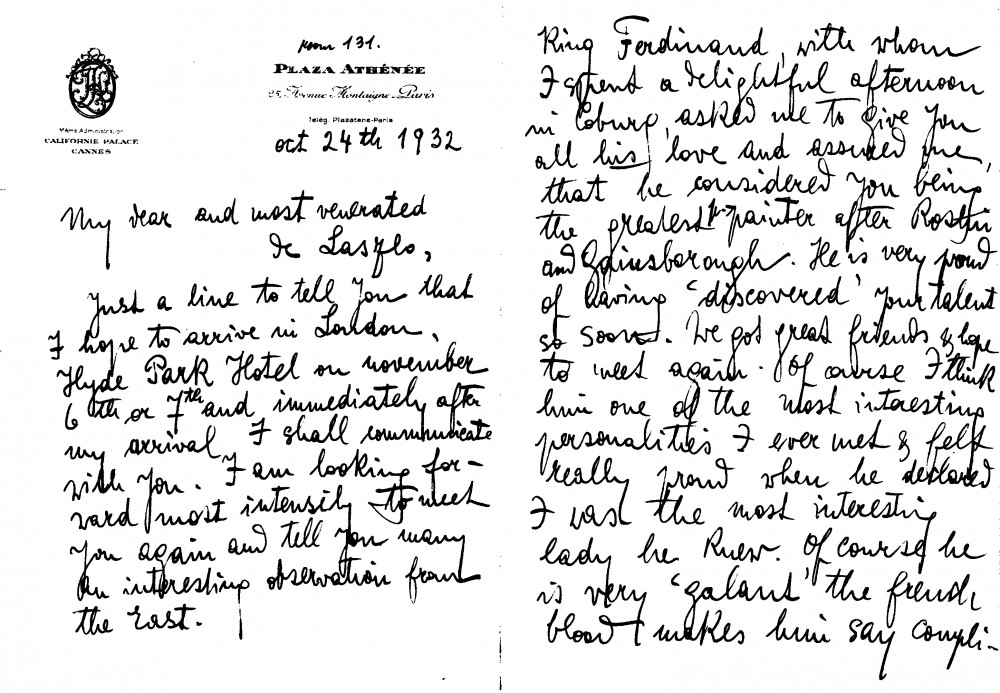 Room 131.
PLAZA ATHÉNÉE
25, Avenue Montaigne - Paris
Télég. Plazatene-Paris
Même Administration
CALIFORNIE PALACE
CANNES
oct 24th 1932
My dear and most venerated
de Laszlo,
Just a line to tell You that
I hope to arrive in London,
Hyde Park Hotel on november
6th or 7th and immediately after
my arrival I shall communicate
with You. I am looking for-
ward most intensily to meet
You again and tell You many
an interesting observation from
the East.
King Ferdinand, with whom
I spent a delightful afternoon
in Coburg, asked me to give You
all his love and assured me,
that he considered You being
the greatest painter after Roslyn
and Gainsborough. He is very proud
of having 'discovered' Your talent
so soon. We got great friends & hope
to meet again. Of course I think
him one of the most interesting
personalities I ever met & felt
really proud when he declared
I was the most interesting
lady he knew. Of course he
is very 'galant' the french
blood makes him say compli-